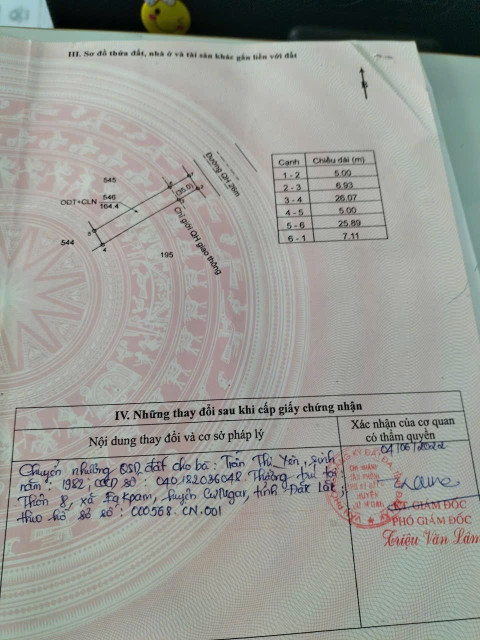 III. Sơ đồ thửa đất, nhà ở và tài sản khác gắn liền với đất
B
Đường QH 26m
Chỉ giới QH giao thông
545
ODT+CLN 546
164.4
(35.0)
544
195
1
2
3
4
5
6
Cạnh Chiều dài (m)
1 - 2 5.00
2 - 3 6.93
3 - 4 26.07
4 - 5 5.00
5 - 6 25.89
6 - 1 7.11
IV. Những thay đổi sau khi cấp giấy chứng nhận
Nội dung thay đổi và cơ sở pháp lý
Xác nhận của cơ quan
có thẩm quyền
Chuyển nhượng QSD đất cho bà: Trần Thị Yến, sinh
năm: 1982, CCCD số: 040182036048. Thường trú tại:
Thôn 8, xã Ea Kpam, huyện Cư M'gar, tỉnh Đắk Lắk;
theo hồ sơ số: 000568.CN.001
04/06/2022
KT. GIÁM ĐỐC
PHÓ GIÁM ĐỐC
Triệu Văn Lâm